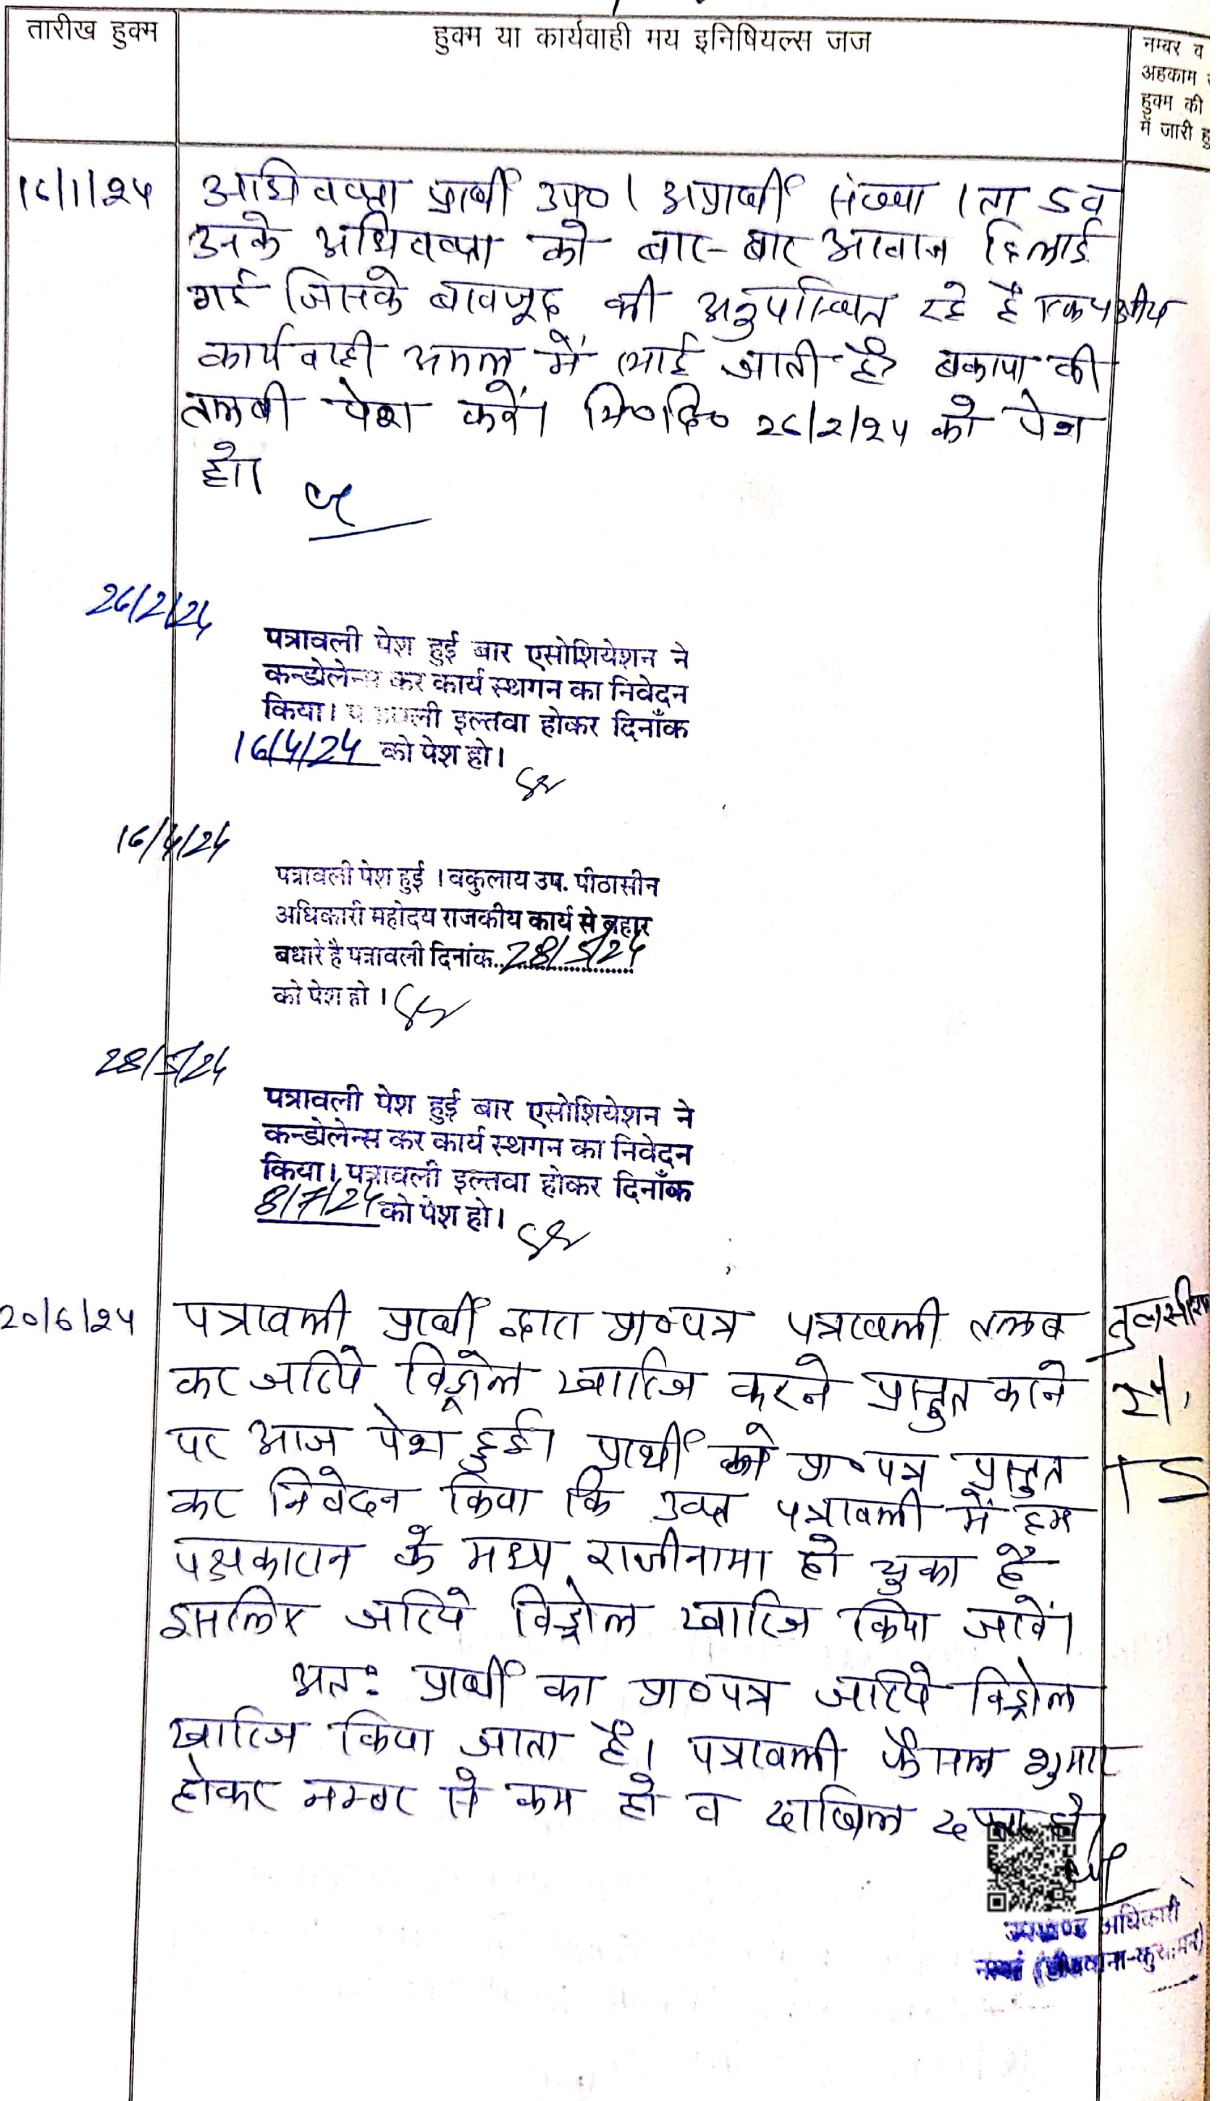 तारीख हुक्म
हुक्म या कार्यवाही मय इनिषियल्स जज
नम्बर व
अहकाम
हुक्म की
में जारी हु
16/1/24
अधिवक्ता प्रार्थी उप0। अप्रार्थी संख्या 1 ता 5 व
उनके अधिवक्ता को बार-बार आवाज दिलाई
गई जिसके बावजूद भी अनुपस्थित रहे है एकपक्षीय
कार्यवाही अमल में लाई जाती है। बकाया की
तलबी पेश करें। मि0दि0 26/2/24 को पेश
हो।
26/2/24
पत्रावली पेश हुई बार एसोशियेशन ने
कन्डोलेन्स कर कार्य स्थगन का निवेदन
किया। पत्रावली इल्तवा होकर दिनाँक
16/4/24 को पेश हो।
16/4/24
पत्रावली पेश हुई । वकुलाय उप. पीठासीन
अधिकारी महोदय राजकीय कार्य से बहार
बधारे है पत्रावली दिनांक..28/5/24
को पेश हो ।
28/5/24
पत्रावली पेश हुई बार एसोशियेशन ने
कन्डोलेन्स कर कार्य स्थगन का निवेदन
किया। पत्रावली इल्तवा होकर दिनाँक
8/7/24 को पेश हो।
20/6/24
पत्रावली प्रार्थी द्वारा प्रा0पत्र पत्रावली तलब
कर जरिये विड्रोल खारिज करने प्रस्तुत करने
पर आज पेश हुई। प्रार्थी ने प्रा0पत्र प्रस्तुत
कर निवेदन किया कि उक्त पत्रावली में हम
पक्षकारान के मध्य राजीनामा हो चुका है
इसलिए जरिये विड्रोल खारिज किया जावें।
अतः प्रार्थी का प्रा0पत्र जरिये विड्रोल
खारिज किया जाता है। पत्रावली फैसल शुमार
होकर नम्बर से कम हो व दाखिल दफ्तर हो।
उपखण्ड अधिकारी